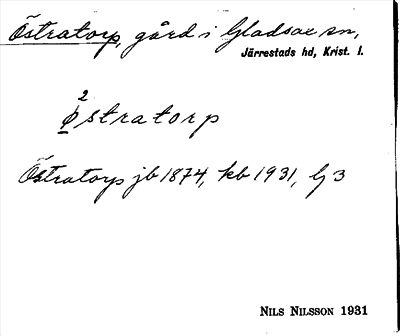 Östratorp, gård i Gladsax sn,
Järrestads hd, Krist. l.
2
østratorp
Östratorp jb 1874, kb 1931, Lj 3
NILS NILSSON 1931